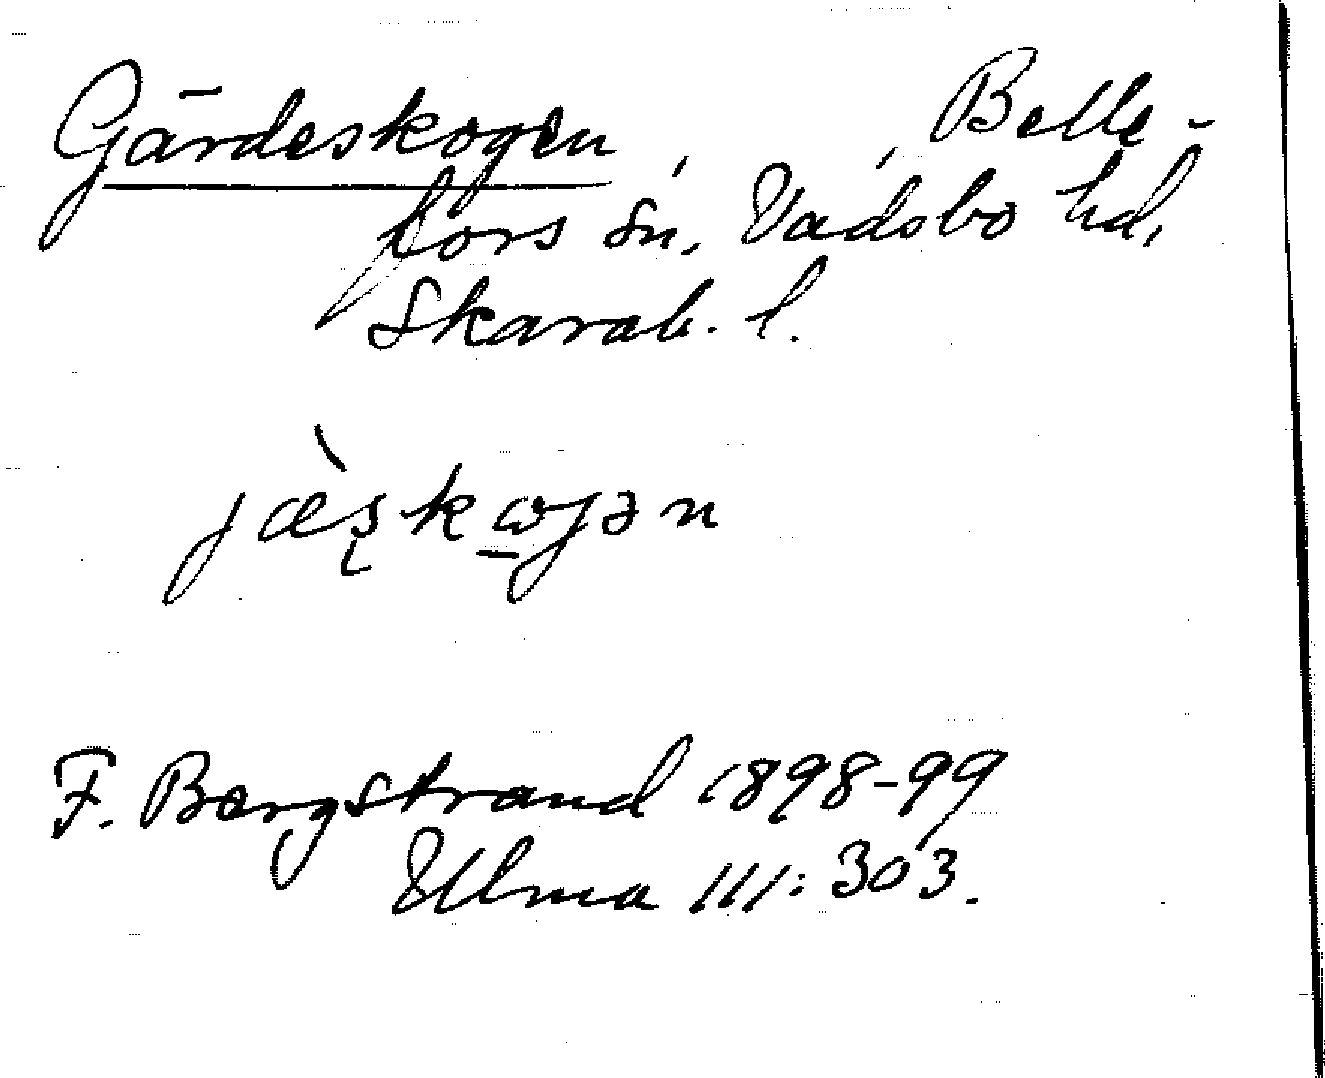 Gärdeskogen, , Belle-
fors sn, Vadsbo hd,
Skarab. l.
jæ̀ʂkɷjən
F. Bergstrand 1898-99
Ulma 111: 303.